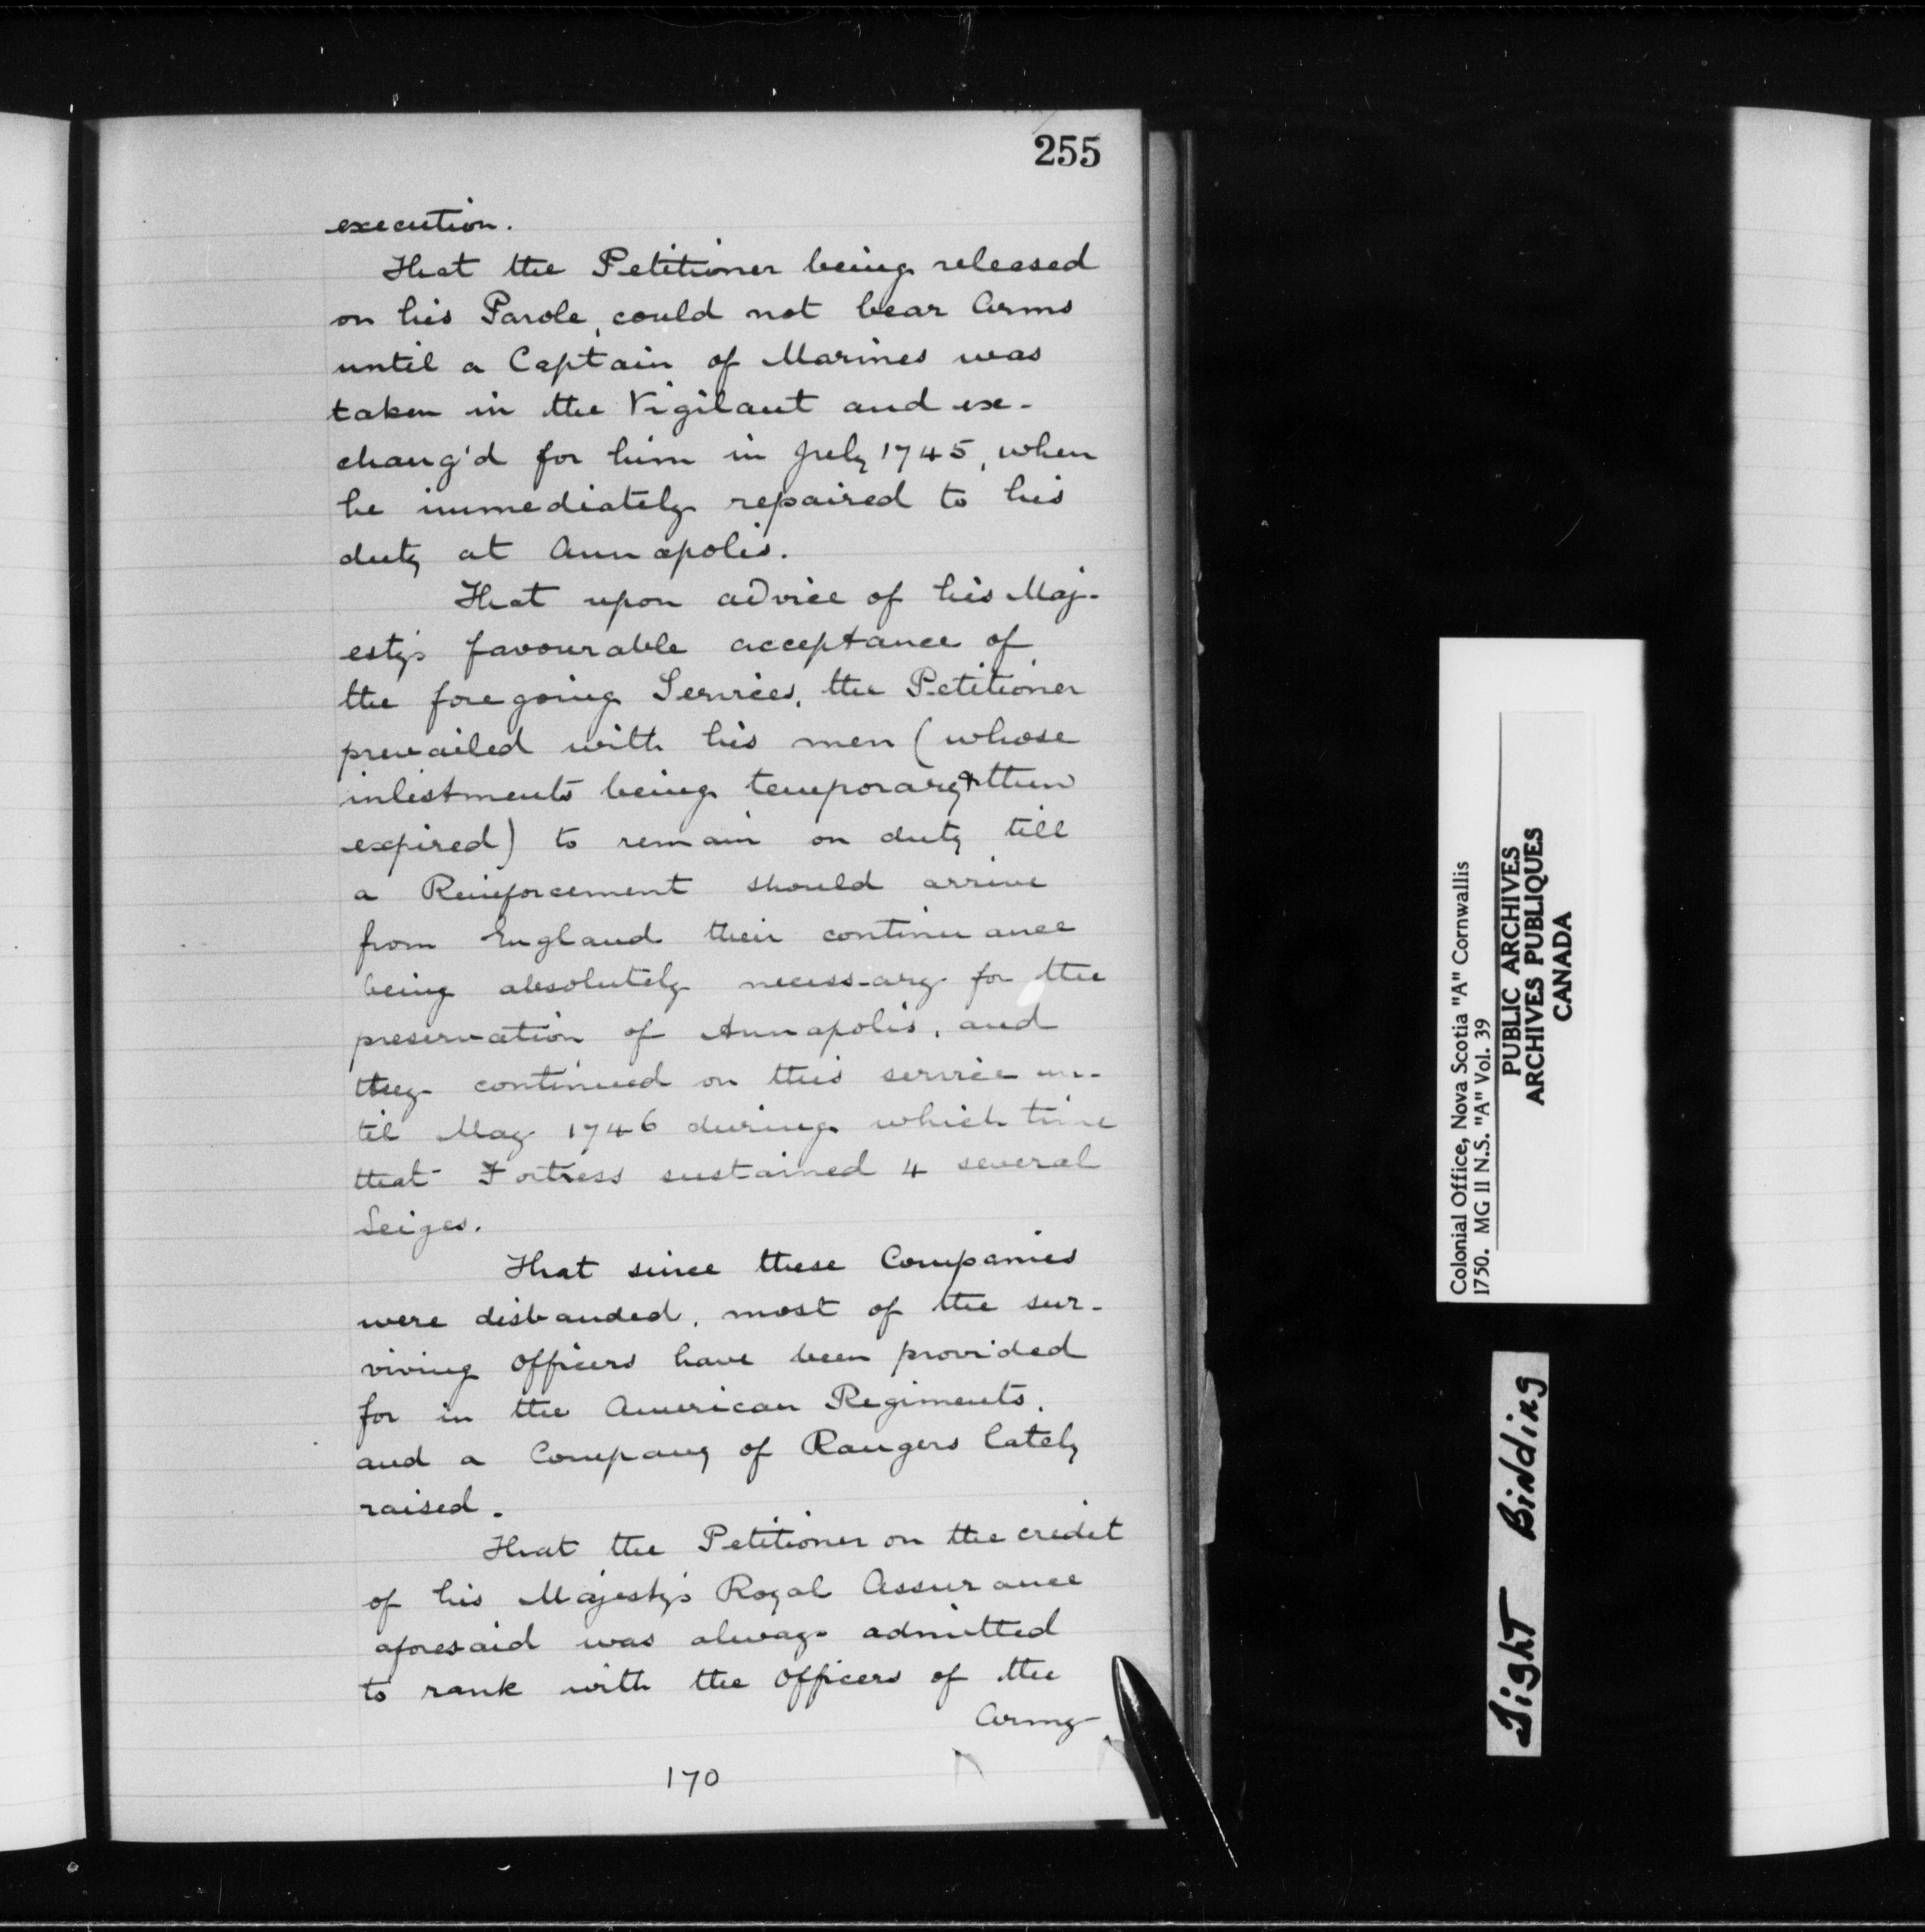 255
execution.
That the Petitioner being released
on his Parole, could not bear Arms
until a Captain of Marines was
taken in the Vigilant and ex-
chang'd for him in July 1745, when
he immediately repaired to his
duty at Annapolis.
That upon advice of his Maj-
esty's favourable acceptance of
the foregoing Services, the Petitioner
prevailed with his men (whose
inlistments being temporary & then
expired) to remain on duty till
a Reinforcement should arrive
from England their continuance
being absolutely necessary for the
preservation of Annapolis, and
they continued on this service un-
til May 1746 during which time
that Fortress sustained 4 several
Seiges.
That since these Companies
were disbanded, most of the sur-
viving Officers have been provided
for in the American Regiments,
and a Company of Rangers lately
raised.
That the Petitioner on the credit
of his Majesty's Royal Assurance
aforesaid was always admitted
to rank with the Officers of the
Army
170
Colonial Office, Nova Scotia "A" Cornwallis
1750. MG 11 N.S. "A" Vol. 39
PUBLIC ARCHIVES
ARCHIVES PUBLIQUES
CANADA
Tight Binding